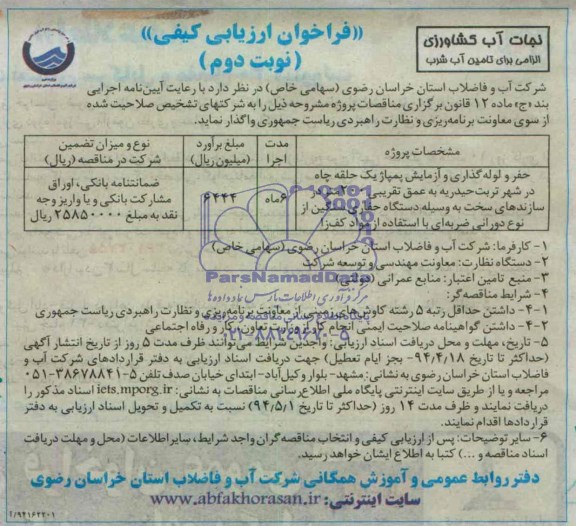 «فراخوان ارزیابی کیفی»
(نوبت دوم)
نجات آب کشاورزی
الزامی برای تامین آب شرب
شرکت آب و فاضلاب استان خراسان رضوی (سهامی خاص) در نظر دارد با رعایت آیین‌نامه اجرایی
بند «ج» ماده ۱۲ قانون برگزاری مناقصات پروژه مشروحه ذیل را به شرکتهای تشخیص صلاحیت شده
از سوی معاونت برنامه‌ریزی و نظارت راهبردی ریاست جمهوری واگذار نماید.
مشخصات پروژه
مدت اجرا
مبلغ برآورد (میلیون ریال)
نوع و میزان تضمین شرکت در مناقصه (ریال)
حفر و لوله‌گذاری و آزمایش پمپاژ یک حلقه چاه
در شهر تربت‌حیدریه به عمق تقریبی ۲۰۰ متر در
سازندهای سخت به وسیله دستگاه حفاری سنگین از
نوع دورانی ضربه‌ای با استفاده از مواد کف‌زا
۶ ماه
۶۴۴۴
ضمانتنامه بانکی، اوراق
مشارکت بانکی و یا واریز وجه
نقد به مبلغ ۲۵۸۵۰۰۰۰۰ ریال
۱- کارفرما: شرکت آب و فاضلاب استان خراسان رضوی (سهامی خاص)
۲- دستگاه نظارت: معاونت مهندسی و توسعه شرکت
۳- منبع تامین اعتبار: منابع عمرانی (دولتی)
۴- شرایط مناقصه‌گر:
۴-۱- داشتن حداقل رتبه ۵ رشته کاوش‌های زمینی از معاونت برنامه‌ریزی و نظارت راهبردی ریاست جمهوری
۴-۲- داشتن گواهینامه صلاحیت ایمنی انجام کار از وزارت تعاون، کار و رفاه اجتماعی
۵- تاریخ، مهلت و محل دریافت اسناد ارزیابی: واجدین شرایط می توانند ظرف مدت ۵ روز از تاریخ انتشار آگهی
(حداکثر تا تاریخ ۹۴/۴/۱۸- بجز ایام تعطیل) جهت دریافت اسناد ارزیابی به دفتر قراردادهای شرکت آب و
فاضلاب استان خراسان رضوی به نشانی: مشهد- بلوار وکیل‌آباد- ابتدای خیابان صدف تلفن ۵-۳۸۶۷۸۸۴۱-۰۵۱
مراجعه و یا از طریق سایت اینترنتی پایگاه ملی اطلاع‌رسانی مناقصات به نشانی: iets.mporg.ir اسناد مذکور را
دریافت نمایند و ظرف مدت ۱۴ روز (حداکثر تا تاریخ ۹۴/۵/۱) نسبت به تکمیل و تحویل اسناد ارزیابی به دفتر
قراردادها اقدام نمایند.
۶- سایر توضیحات: پس از ارزیابی کیفی و انتخاب مناقصه‌گران واجد شرایط، سایر اطلاعات (محل و مهلت دریافت
اسناد مناقصه و ...) کتبا به اطلاع ایشان خواهد رسید.
دفتر روابط عمومی و آموزش همگانی شرکت آب و فاضلاب استان خراسان رضوی
سایت اینترنتی: www.abfakhorasan.ir
ParsNamadData
۰۲۱-۸۸۳۴۹۶۷۰-۵
۹۴۱۶۲۴۰۱/آ